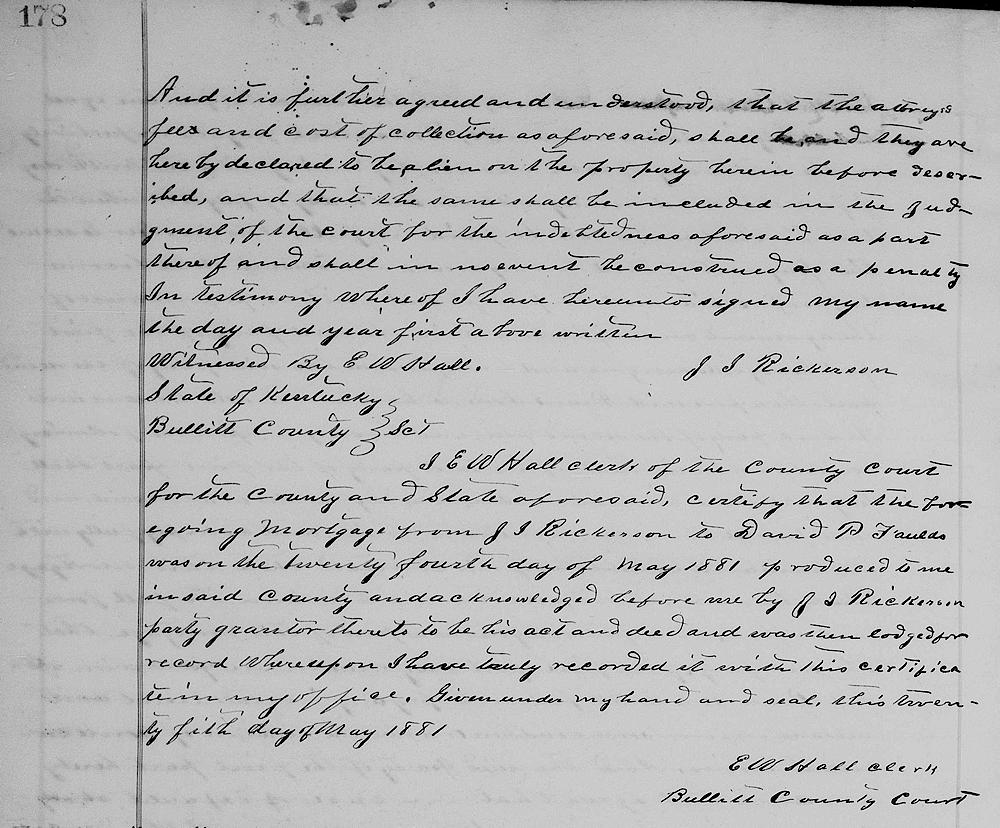 178
And it is further agreed and understood, that the atoreys
fees and cost of collection as aforesaid, shall be, and they are
hereby declared to be a lien on the property herein before descr-
ibed, and that the same shall be included in the Jud-
gment, of the court for the indebtedness aforesaid as a part
thereof, and shall in no event be construed as a penalty
In testimony whereof I have hereunto signed my name
the day and year first above written
Witnessed By E W Hall. J I Rickerson
State of Kentucky
Bullitt County } Sct
I E W Hall clerk of the County Court
for the County and State aforesaid, certify that the for-
egoing Mortgage from J I Rickerson to David P Faulds
was on the twenty fourth day of May 1881 produced to me
in said County and acknowledged before me by J I Rickerson
party grantor thereto to be his act and deed and was then lodged for
record Whereupon I have truly recorded it with this certifica
te in my office. Given under my hand and seal, this twen-
ty fifth day of May 1881
E W Hall Clerk
Bullitt County Court